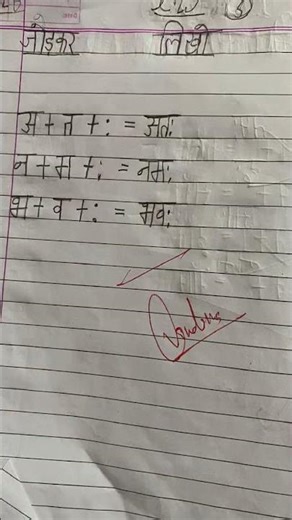 जोड़कर लिखो
अ + त + : = अतः
न + म + : = नमः
भ + व + : = भवः